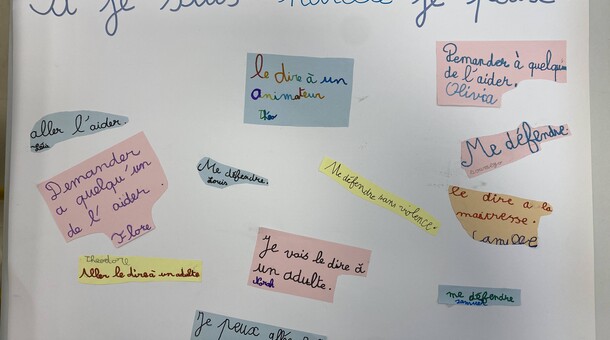 Si je suis harcelé je peux
le dire à un
animateur
Théo
Demander à quelqu'un
de l'aider.
Olivia
aller l'aider
Loïs
Me défendre.
Demander
a quelqu'un
de l'aider.
Flore
Me défendre.
Louis
Me défendre sans violence.
le dire a la
maitresse.
Camille
Theodore
Aller le dire à un adulte
Je vais le dire à
un adulte.
me défendre
Je peux